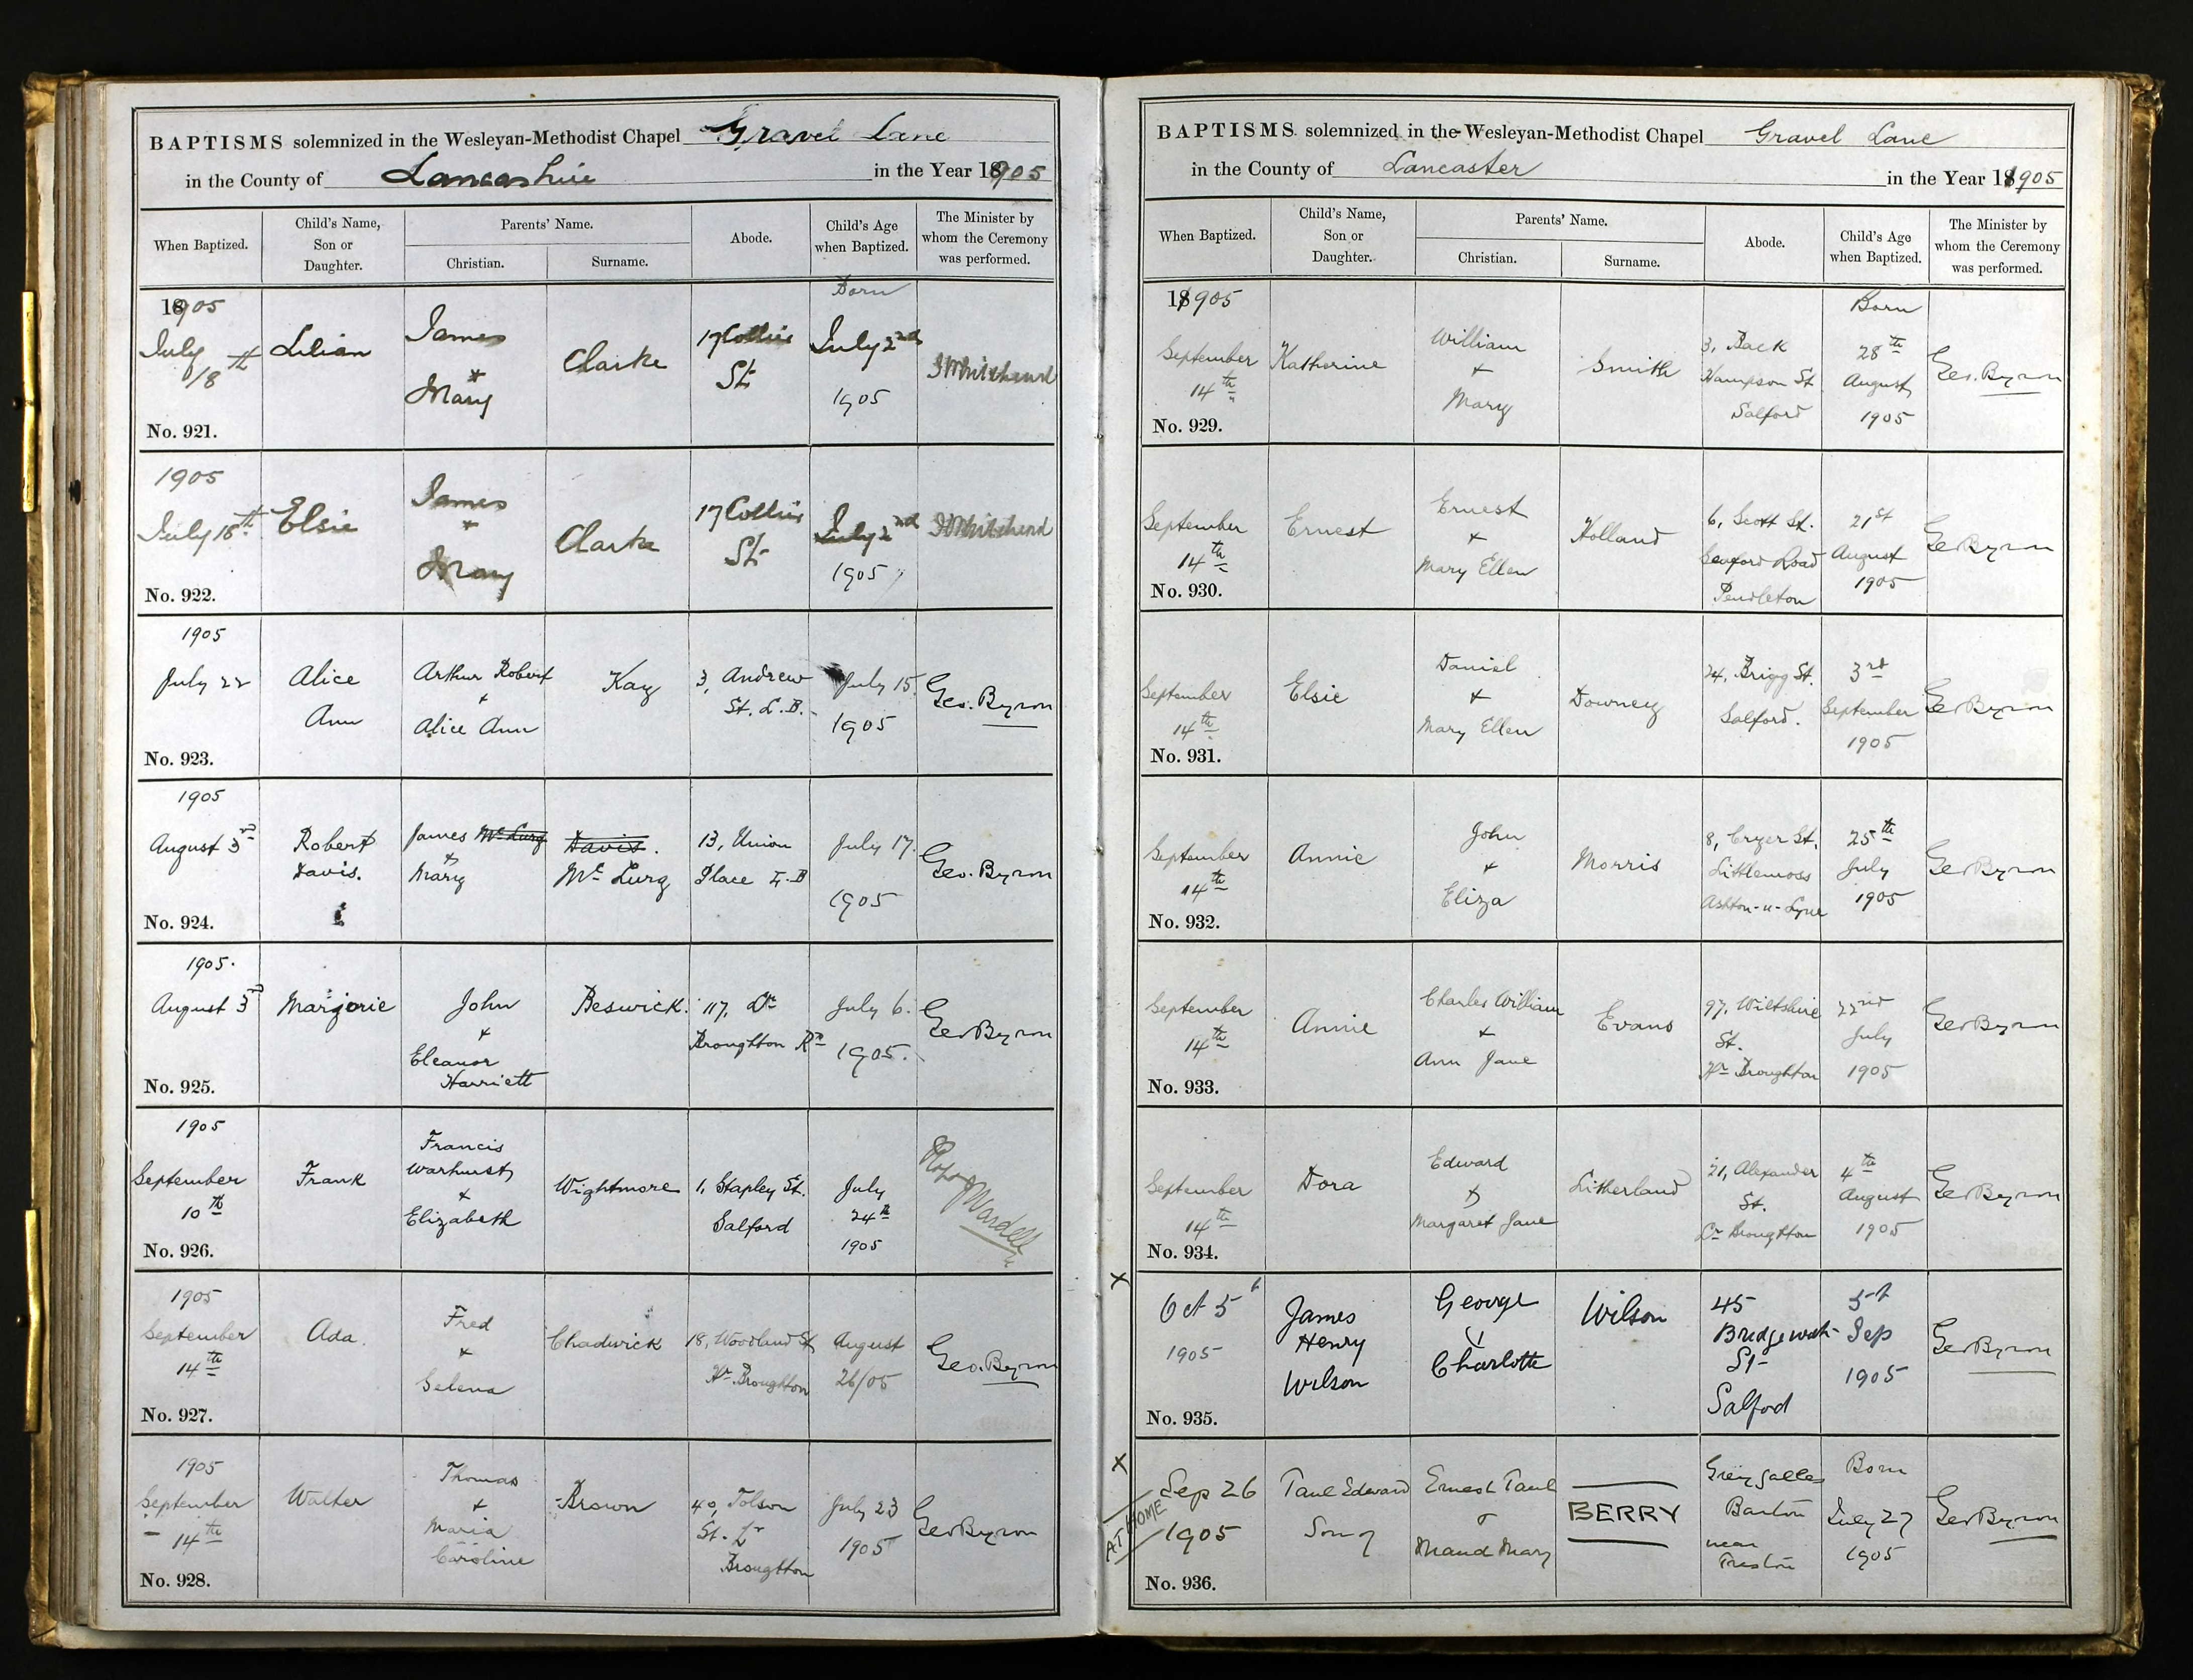 BAPTISMS solemnized in the Wesleyan-Methodist Chapel Gravel Lane
in the County of Lancashire in the Year 18905
When Baptized.
Child's Name,
Son or
Daughter.
Parents' Name.
Christian.
Surname.
Abode.
Child's Age
when Baptized.
The Minister by
whom the Ceremony
was performed.
18905
July
18th
Lilian
James
+
Mary
Clarke
17 Collier
St
Born
July 2nd
1905
J Whitehead
No. 921.
1905
July 18th
Elsie
James
+
Mary
Clarke
17 Collier
St
July 2nd
1905
J Whitehead
No. 922.
1905
July 22
Alice
Ann
Arthur Robert
+
Alice Ann
Kay
3, Andrew
St. L. B.
July 15.
1905
Geo. Byron
No. 923.
1905
August 3rd
Robert
Davis.
James Mc Lurg
+
Mary
Davis.
Mc Lurg
13, Union
Place L. B
July 17.
1905
Geo. Byron
No. 924.
1905.
August 3rd
Marjorie
John
+
Eleanor
Harriett
Beswick.
117, Lr
Broughton Rd
July 6.
1905.
Geo Byron
No. 925.
1905
September
10th
Frank
Francis
Warhurst
+
Elizabeth
Wightmore
1, Stapley St.
Salford
July
24th
1905
Wardell
No. 926.
1905
September
14th
Ada
Fred
+
Selena
Chadwick
18, Woodland St
Hr. Broughton
August
26/05
Geo. Byron
No. 927.
1905
September
14th
Walter
Thomas
+
Maria
Caroline
Brown
40, Tolson
St. Lr
Broughton
July 23
1905
Geo Byron
No. 928.
BAPTISMS solemnized in the Wesleyan-Methodist Chapel Gravel Lane
in the County of Lancaster in the Year 18905
When Baptized.
Child's Name,
Son or
Daughter.
Parents' Name.
Christian.
Surname.
Abode.
Child's Age
when Baptized.
The Minister by
whom the Ceremony
was performed.
18905
September
14th
Katherine
William
+
Mary
Smith
3, Back
Hampson St
Salford
Born
28th
August
1905
Geo. Byron
No. 929.
September
14th
Ernest
Ernest
+
Mary Ellen
Holland
6, Scott St.
Seaford Road
Pendleton
21st
August
1905
Geo Byron
No. 930.
September
14th
Elsie
Daniel
+
Mary Ellen
Downey
24, Brigg St.
Salford.
3rd
September
1905
Geo Byron
No. 931.
September
14th
Annie
John
+
Eliza
Morris
8, Cryer St.
Littlemoss
Ashton-u-Lyne
25th
July
1905
Geo Byron
No. 932.
September
14th
Annie
Charles William
+
Ann Jane
Evans
97, Wiltshire
St.
Hr Broughton
22nd
July
1905
Geo Byron
No. 933.
September
14th
Dora
Edward
+
Margaret Jane
Litherland
21, Alexander
St.
Lr Broughton
4th
August
1905
Geo Byron
No. 934.
X
Oct 5
1905
James
Henry
Wilson
George
&
Charlotte
Wilson
45
Bridgewatr
St
Salford
5th
Sep
1905
Geo Byron
No. 935.
X
AT HOME
Sep 26
1905
Paul Edward
Son of
Ernest Paul
&
Maud Mary
BERRY
Barton
near
Preston
Born
July 27
1905
Geo Byron
No. 936.